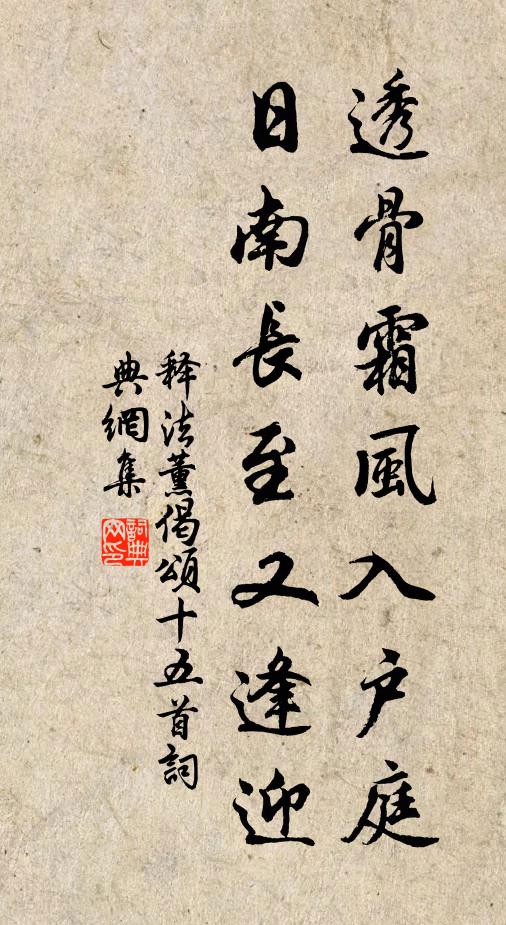 透骨霜風入户庭
日南長至又逢迎
释法薰偈頌十五首詞
典網集
詞典网印